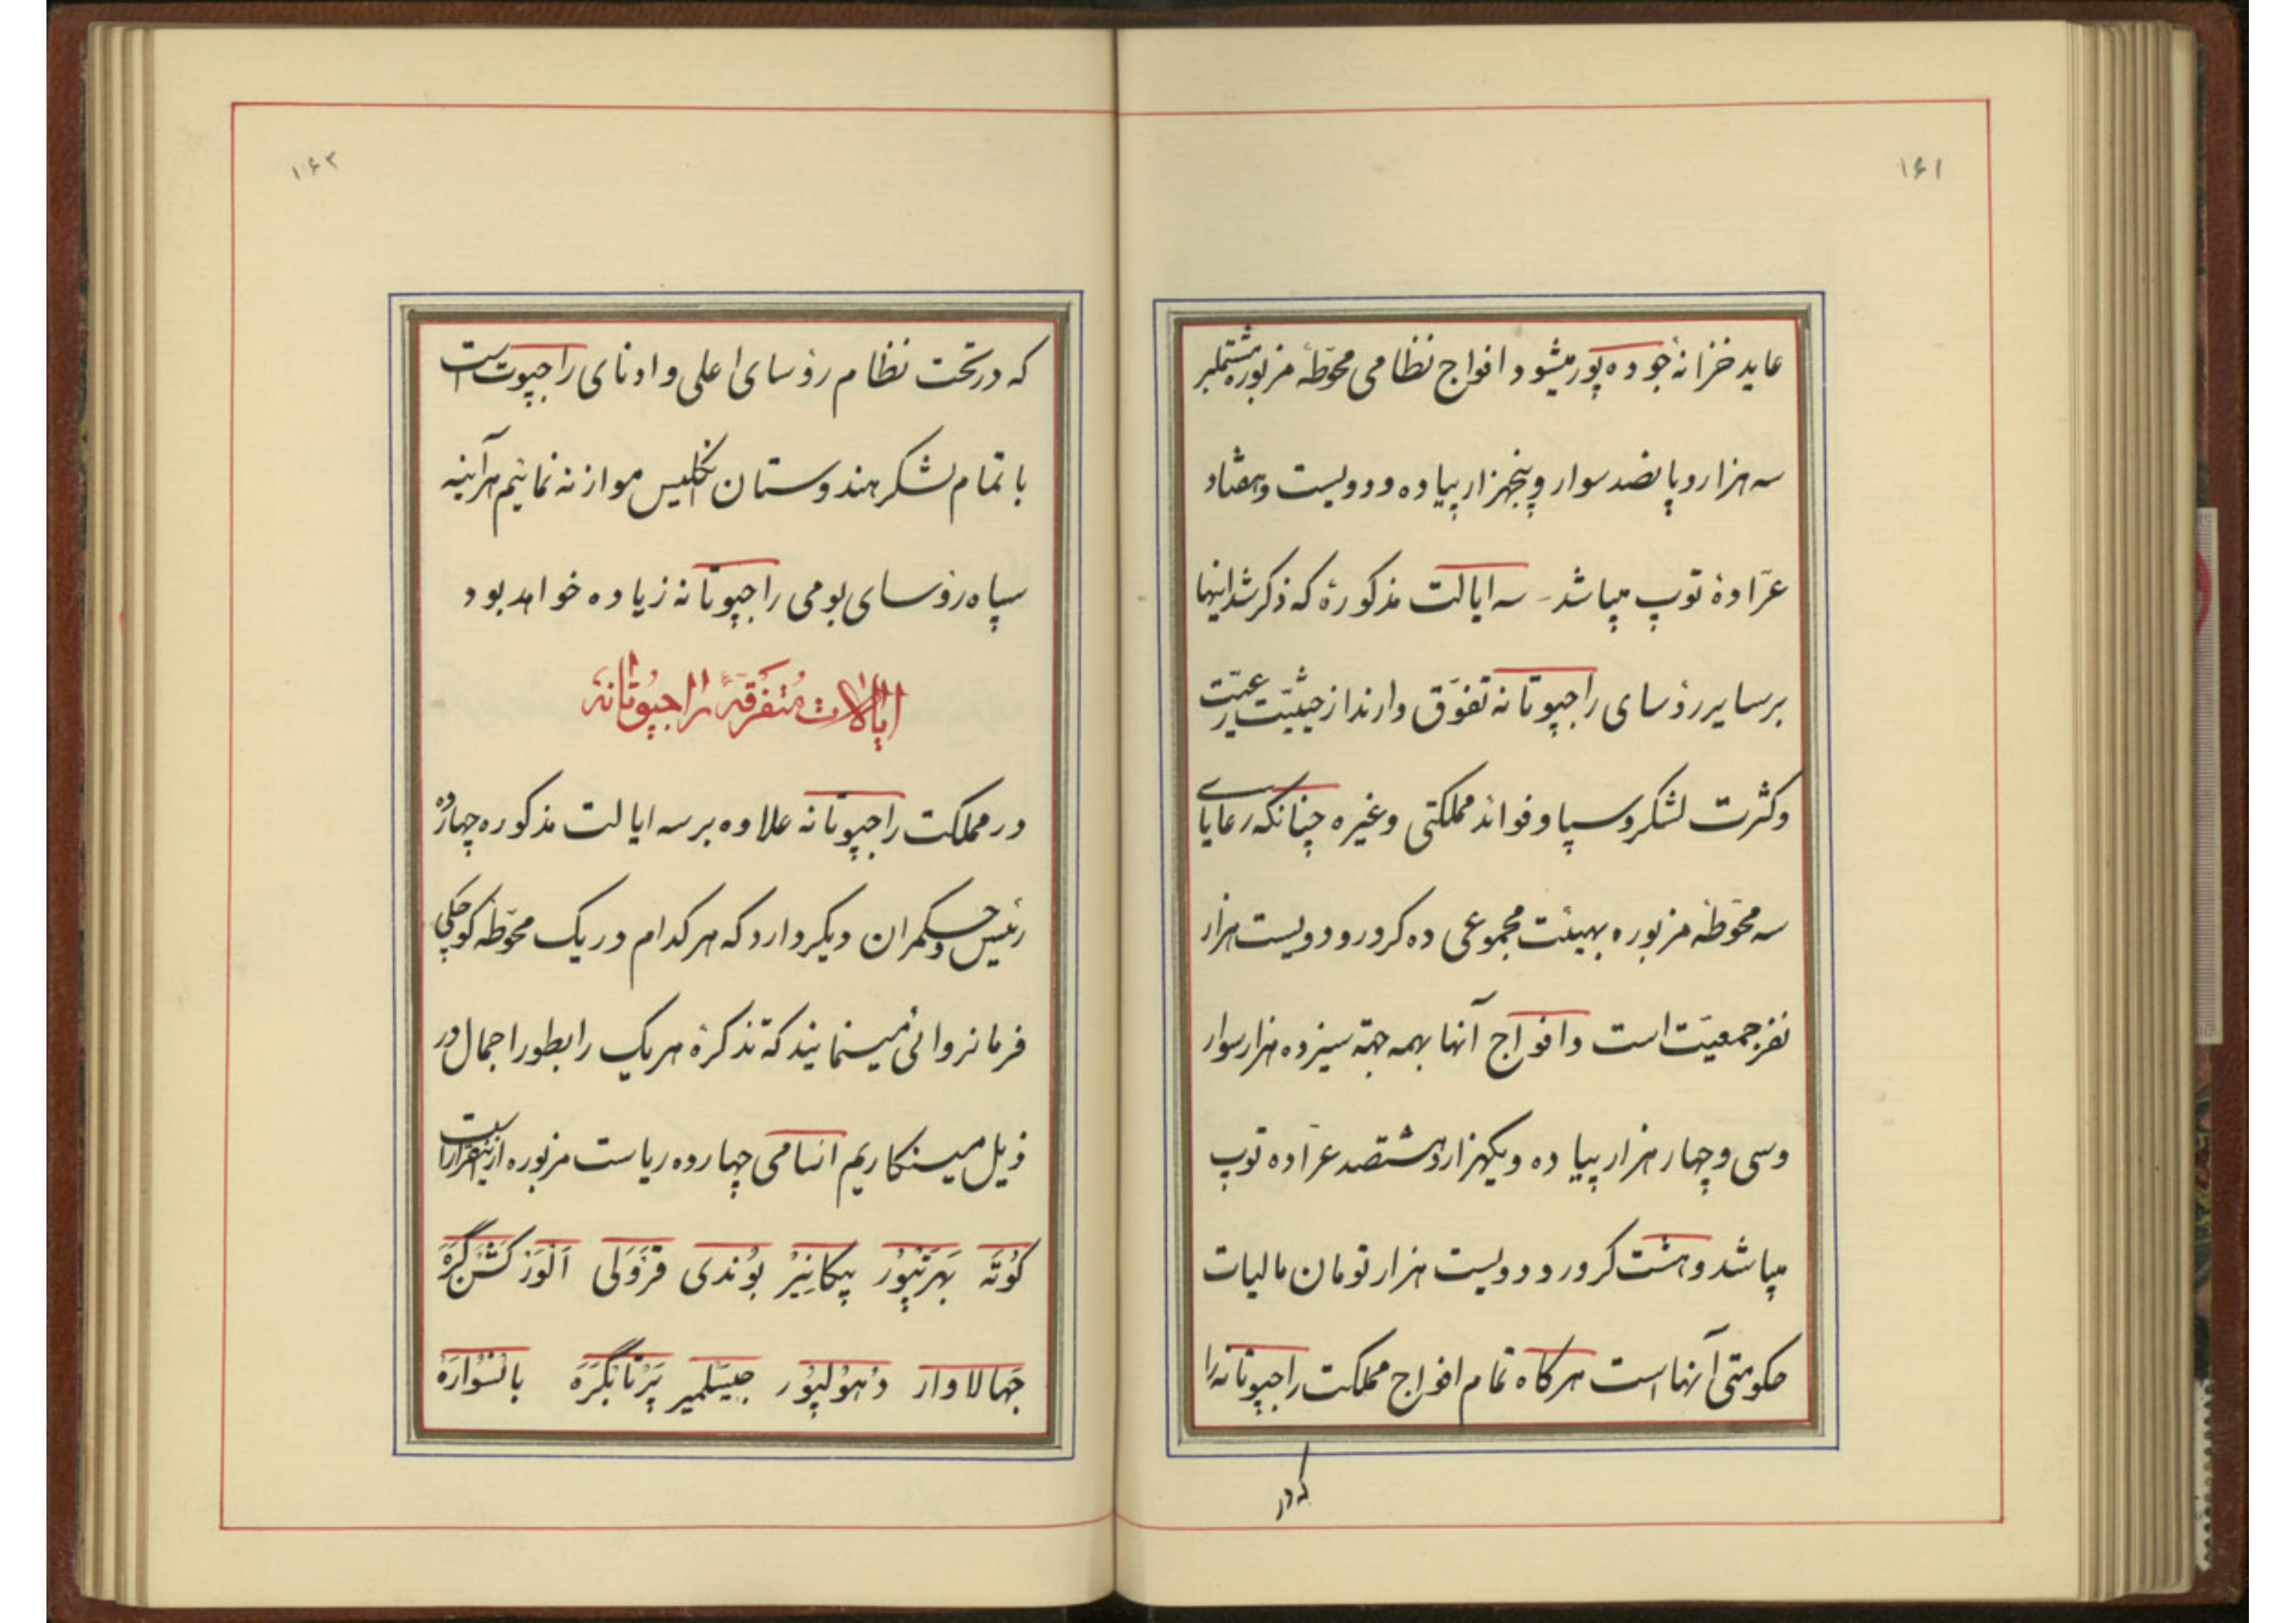 ۱۶۱
عاید خزانهٔ جوده پور میشود و افواج نظامی محوّطهٔ مزبوره مشتملبر
سه هزار و پانصد سوار و پنجهزار پیاده و دویست و هفتاد
عرّادهٔ توپ میباشد - سه ایالت مذکورهٔ که ذکر شد اینها
بر سایر رؤسای راجپوتانه تفوّق دارند از حیثیّت رعیّت
و کثرت لشکر و سپاه و فوائد مملکتی و غیره چنانکه رعایای
سه محوّطهٔ مزبوره بهیئت مجموعی ده کرور و دویست هزار
نفر جمعیّت است و افواج آنها بهمه جهة سیزده هزار سوار
و سی و چهار هزار پیاده و یکهزار و هشتصد عرّاده توپ
میباشد و هشت کرور و دویست هزار تومان مالیات
حکومتی آنها است هر کاه تمام افواج مملکت راجپوتانه را
که در
۱۶۲
که در تحت نظام رؤسای اعلی و ادنای راجپوت است
با تمام لشکر هندوستان انگلیس موازنه نمائیم هرآینه
سپاه رؤسای بومی راجپوتانه زیاده خواهد بود
ایالات متفرقهٔ راجپوتانه
در مملکت راجپوتانه علاوه بر سه ایالت مذکوره چهارده
رئیس و حکمران دیکر دارد که هر کدام در یک محوّطهٔ کوچکی
فرمانروائی مینمایند که تذکرهٔ هر یک را بطور اجمال در
ذیل مینکاریم اسامی چهارده ریاست مزبوره ازینقرار است
کُوتَه بَهرَتپُور بیکانِیر بُوندی قَرَوَلی اَلوَر کَشَن گَرَه
جَهالاوار دَهولپُور جَیسَلمیر پَرتابگَرَه بانسوارَه